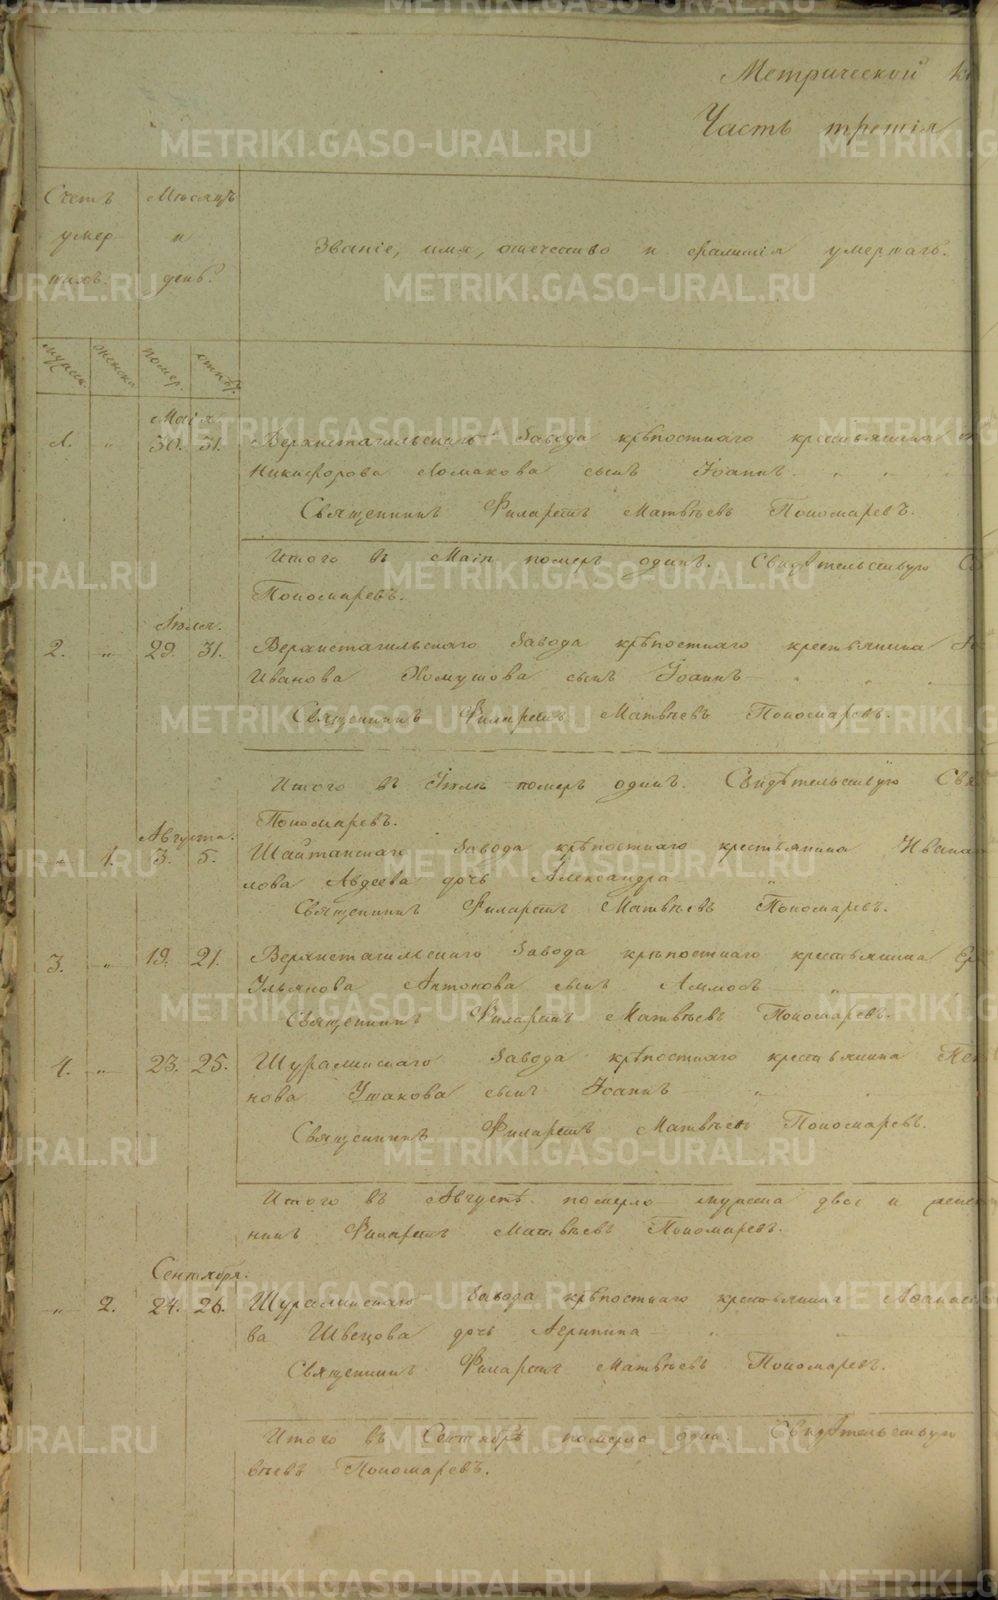 Метрической
Часть третія
Счетъ умер тихъ.
Мѣсяцъ и день.
Званіе, имя, отечество и фамилія умершаго.
мужеск. женска помер. отпѣт.
Маія
1. „ 30. 31. Верхнетагильскаго Завода крѣпостнаго крестьянина
Никифорова Ломакова сынъ Іоаннъ
Священникъ Филаретъ Матвѣевъ Пономаревъ.
Итого въ Маіи померъ одинъ. Свидѣтельствую
Пономаревъ.
Іюля.
2. „ 29. 31. Верхнетагильскаго Завода крѣпостнаго крестьянина
Иванова Хомутова сынъ Іоаннъ
Священникъ Филаретъ Матвѣевъ Пономаревъ.
Итого въ Іюлѣ померъ одинъ. Свидѣтельствую Свя
Пономаревъ.
Августа.
„ 1. 3. 5. Шайтанскаго Завода крѣпостнаго крестьянина Ивана
лова Авдеева дочь Александра
Священникъ Филаретъ Матвѣевъ Пономаревъ.
3. „ 19. 21. Верхнетагильскаго Завода крѣпостнаго крестьянина
Ульянова Антонова сынъ Аммосъ
Священникъ Филаретъ Матвѣевъ Пономаревъ.
4. „ 23. 25. Шуралинскаго Завода крѣпостнаго крестьянина
нова Ушакова сынъ Іоаннъ
Священникъ Филаретъ Матвѣевъ Пономаревъ.
Итого въ Августѣ померло мужеска двое и женс
никъ Филаретъ Матвѣевъ Пономаревъ.
Сентября.
„ 2. 24. 26. Шуралинскаго Завода крѣпостнаго крестьянина Афанась
ва Швецова дочь Агрипина
Священникъ Филаретъ Матвѣевъ Пономаревъ.
Итого въ Сентябрѣ померла одна. Свидѣтельствую
вѣевъ Пономаревъ.
METRIKI.GASO-URAL.RU